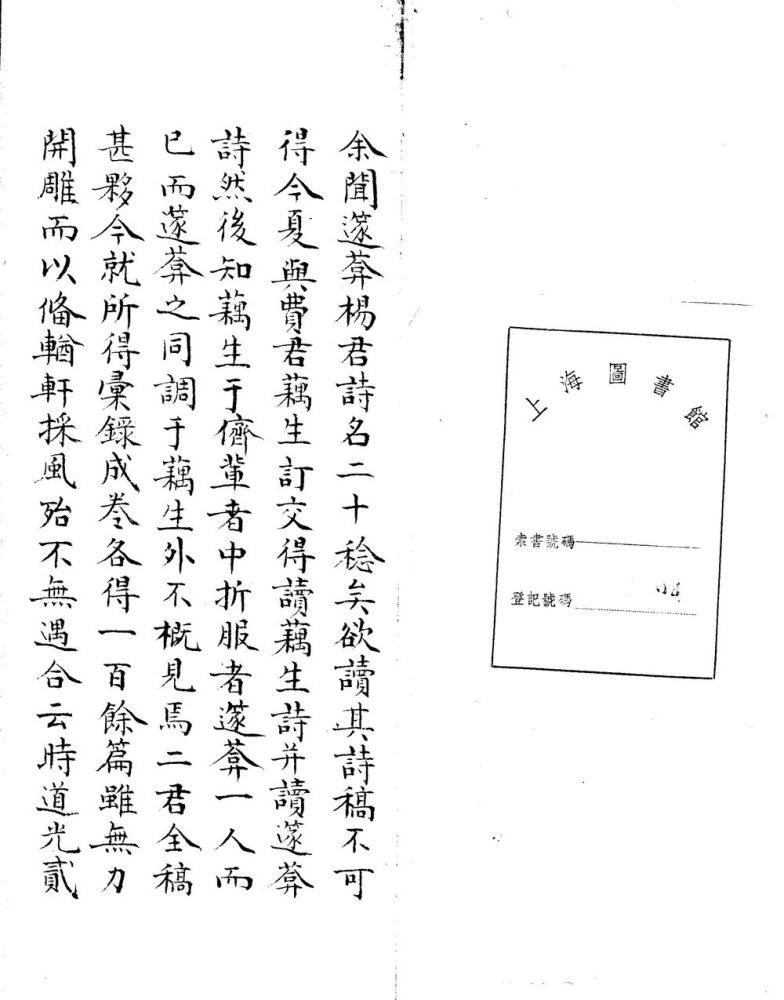 上海圖書館
索書號碼
登記號碼
余聞蘧葊楊君詩名二十稔矣欲讀其詩稿不可
得今夏與費君藕生訂交得讀藕生詩并讀蘧葊
詩然後知藕生于儕輩者中折服者蘧葊一人而
已而蘧葊之同調于藕生外不概見焉二君全稿
甚夥今就所得彙錄成卷各得一百餘篇雖無力
開雕而以俻輶軒採風殆不無遇合云時道光貳